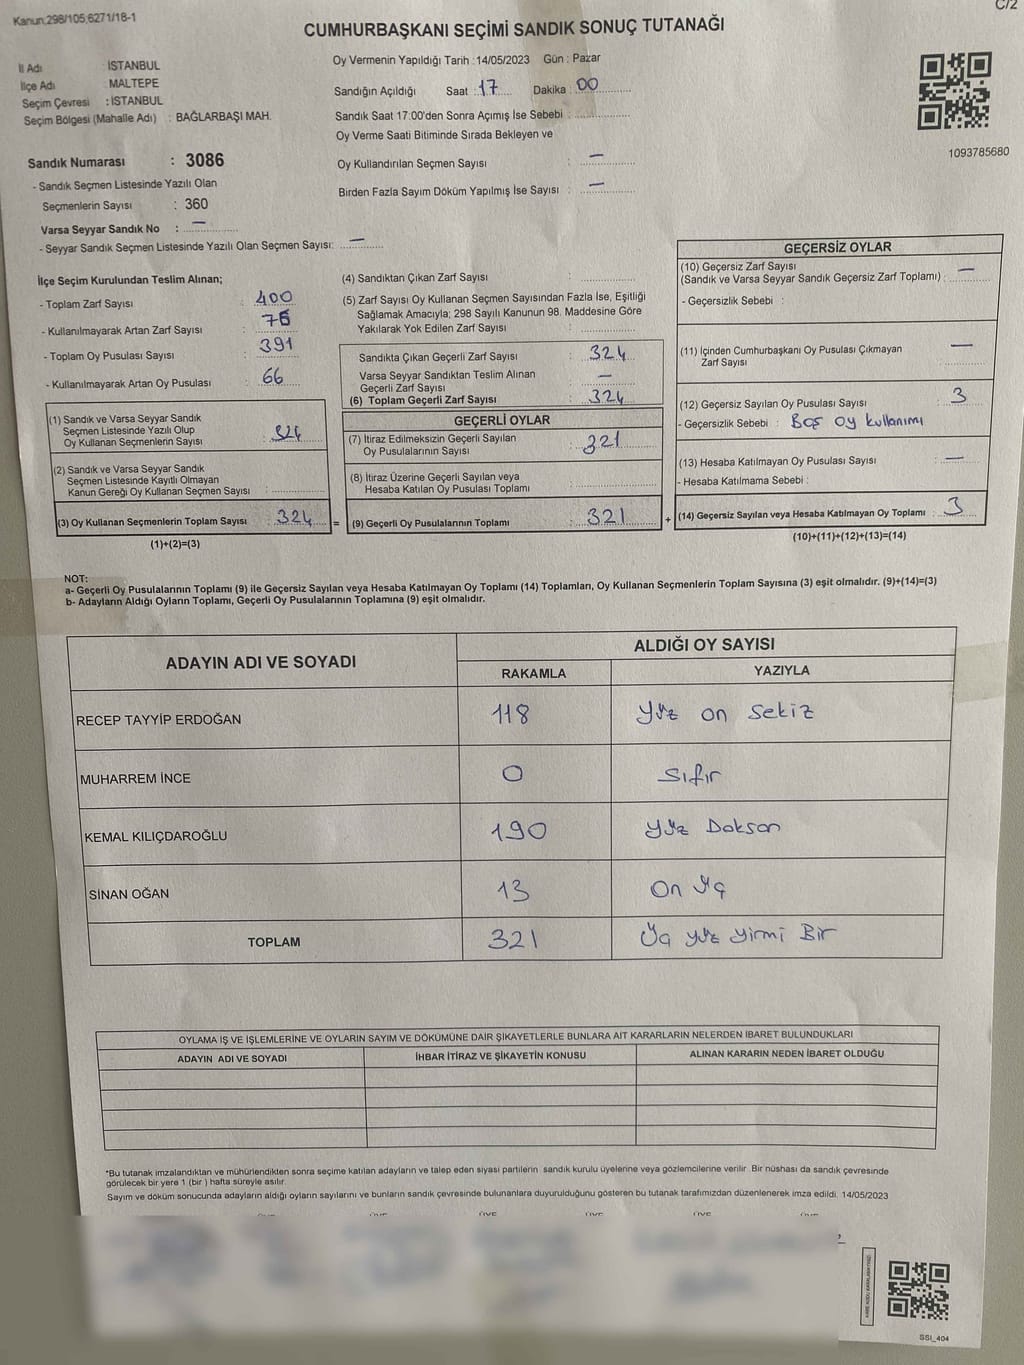 Kanun;298/105;6271/18-1
C/2
CUMHURBAŞKANI SEÇİMİ SANDIK SONUÇ TUTANAĞI
İl Adı : İSTANBUL
İlçe Adı : MALTEPE
Seçim Çevresi : İSTANBUL
Seçim Bölgesi (Mahalle Adı) : BAĞLARBAŞI MAH.
Sandık Numarası : 3086
- Sandık Seçmen Listesinde Yazılı Olan
Seçmenlerin Sayısı : 360
Varsa Seyyar Sandık No : —
- Seyyar Sandık Seçmen Listesinde Yazılı Olan Seçmen Sayısı: —
Oy Vermenin Yapıldığı Tarih : 14/05/2023 Gün : Pazar
Sandığın Açıldığı Saat : 17 Dakika : 00
Sandık Saat 17:00'den Sonra Açımış İse Sebebi :
Oy Verme Saati Bitiminde Sırada Bekleyen ve
Oy Kullandırılan Seçmen Sayısı : —
Birden Fazla Sayım Döküm Yapılmış İse Sayısı : —
1093785680
İlçe Seçim Kurulundan Teslim Alınan;
- Toplam Zarf Sayısı : 400
- Kullanılmayarak Artan Zarf Sayısı :
- Toplam Oy Pusulası Sayısı : 391
- Kullanılmayarak Artan Oy Pusulası : 66
(1) Sandık ve Varsa Seyyar Sandık
Seçmen Listesinde Yazılı Olup
Oy Kullanan Seçmenlerin Sayısı : 324
(2) Sandık ve Varsa Seyyar Sandık
Seçmen Listesinde Kayıtlı Olmayan
Kanun Gereği Oy Kullanan Seçmen Sayısı :
(3) Oy Kullanan Seçmenlerin Toplam Sayısı : 324 =
(1)+(2)=(3)
(4) Sandıktan Çıkan Zarf Sayısı :
(5) Zarf Sayısı Oy Kullanan Seçmen Sayısından Fazla İse, Eşitliği
Sağlamak Amacıyla; 298 Sayılı Kanunun 98. Maddesine Göre
Yakılarak Yok Edilen Zarf Sayısı :
Sandıkta Çıkan Geçerli Zarf Sayısı : 324
Varsa Seyyar Sandıktan Teslim Alınan
Geçerli Zarf Sayısı : —
(6) Toplam Geçerli Zarf Sayısı : 324
GEÇERLİ OYLAR
(7) İtiraz Edilmeksizin Geçerli Sayılan
Oy Pusulalarının Sayısı : 321
(8) İtiraz Üzerine Geçerli Sayılan veya
Hesaba Katılan Oy Pusulası Toplamı :
(9) Geçerli Oy Pusulalarının Toplamı : 321 +
GEÇERSİZ OYLAR
(10) Geçersiz Zarf Sayısı
(Sandık ve Varsa Seyyar Sandık Geçersiz Zarf Toplamı) : —
- Geçersizlik Sebebi :
(11) İçinden Cumhurbaşkanı Oy Pusulası Çıkmayan
Zarf Sayısı : —
(12) Geçersiz Sayılan Oy Pusulası Sayısı : 3
- Geçersizlik Sebebi : Boş oy kullanımı
(13) Hesaba Katılmayan Oy Pusulası Sayısı : —
- Hesaba Katılmama Sebebi :
(14) Geçersiz Sayılan veya Hesaba Katılmayan Oy Toplamı : 3
(10)+(11)+(12)+(13)=(14)
NOT:
a- Geçerli Oy Pusulalarının Toplamı (9) ile Geçersiz Sayılan veya Hesaba Katılmayan Oy Toplamı (14) Toplamları, Oy Kullanan Seçmenlerin Toplam Sayısına (3) eşit olmalıdır. (9)+(14)=(3)
b- Adayların Aldığı Oyların Toplamı, Geçerli Oy Pusulalarının Toplamına (9) eşit olmalıdır.
ADAYIN ADI VE SOYADI ALDIĞI OY SAYISI
RAKAMLA YAZIYLA
RECEP TAYYİP ERDOĞAN 118 Yüz on sekiz
MUHARREM İNCE 0 Sıfır
KEMAL KILIÇDAROĞLU 190 Yüz Doksan
SİNAN OĞAN 13 On üç
TOPLAM 321 Üç yüz yirmi Bir
OYLAMA İŞ VE İŞLEMLERİNE VE OYLARIN SAYIM VE DÖKÜMÜNE DAİR ŞİKAYETLERLE BUNLARA AİT KARARLARIN NELERDEN İBARET BULUNDUKLARI
ADAYIN ADI VE SOYADI İHBAR İTİRAZ VE ŞİKAYETİN KONUSU ALINAN KARARIN NEDEN İBARET OLDUĞU
*Bu tutanak imzalandıktan ve mühürlendikten sonra seçime katılan adayların ve talep eden siyasi partilerin sandık kurulu üyelerine veya gözlemcilerine verilir. Bir nüshası da sandık çevresinde
görülecek bir yere 1 (bir ) hafta süreyle asılır.
Sayım ve döküm sonucunda adayların aldığı oyların sayılarını ve bunların sandık çevresinde bulunanlara duyurulduğunu gösteren bu tutanak tarafımızdan düzenlenerek imza edildi. 14/05/2023
SSI_404